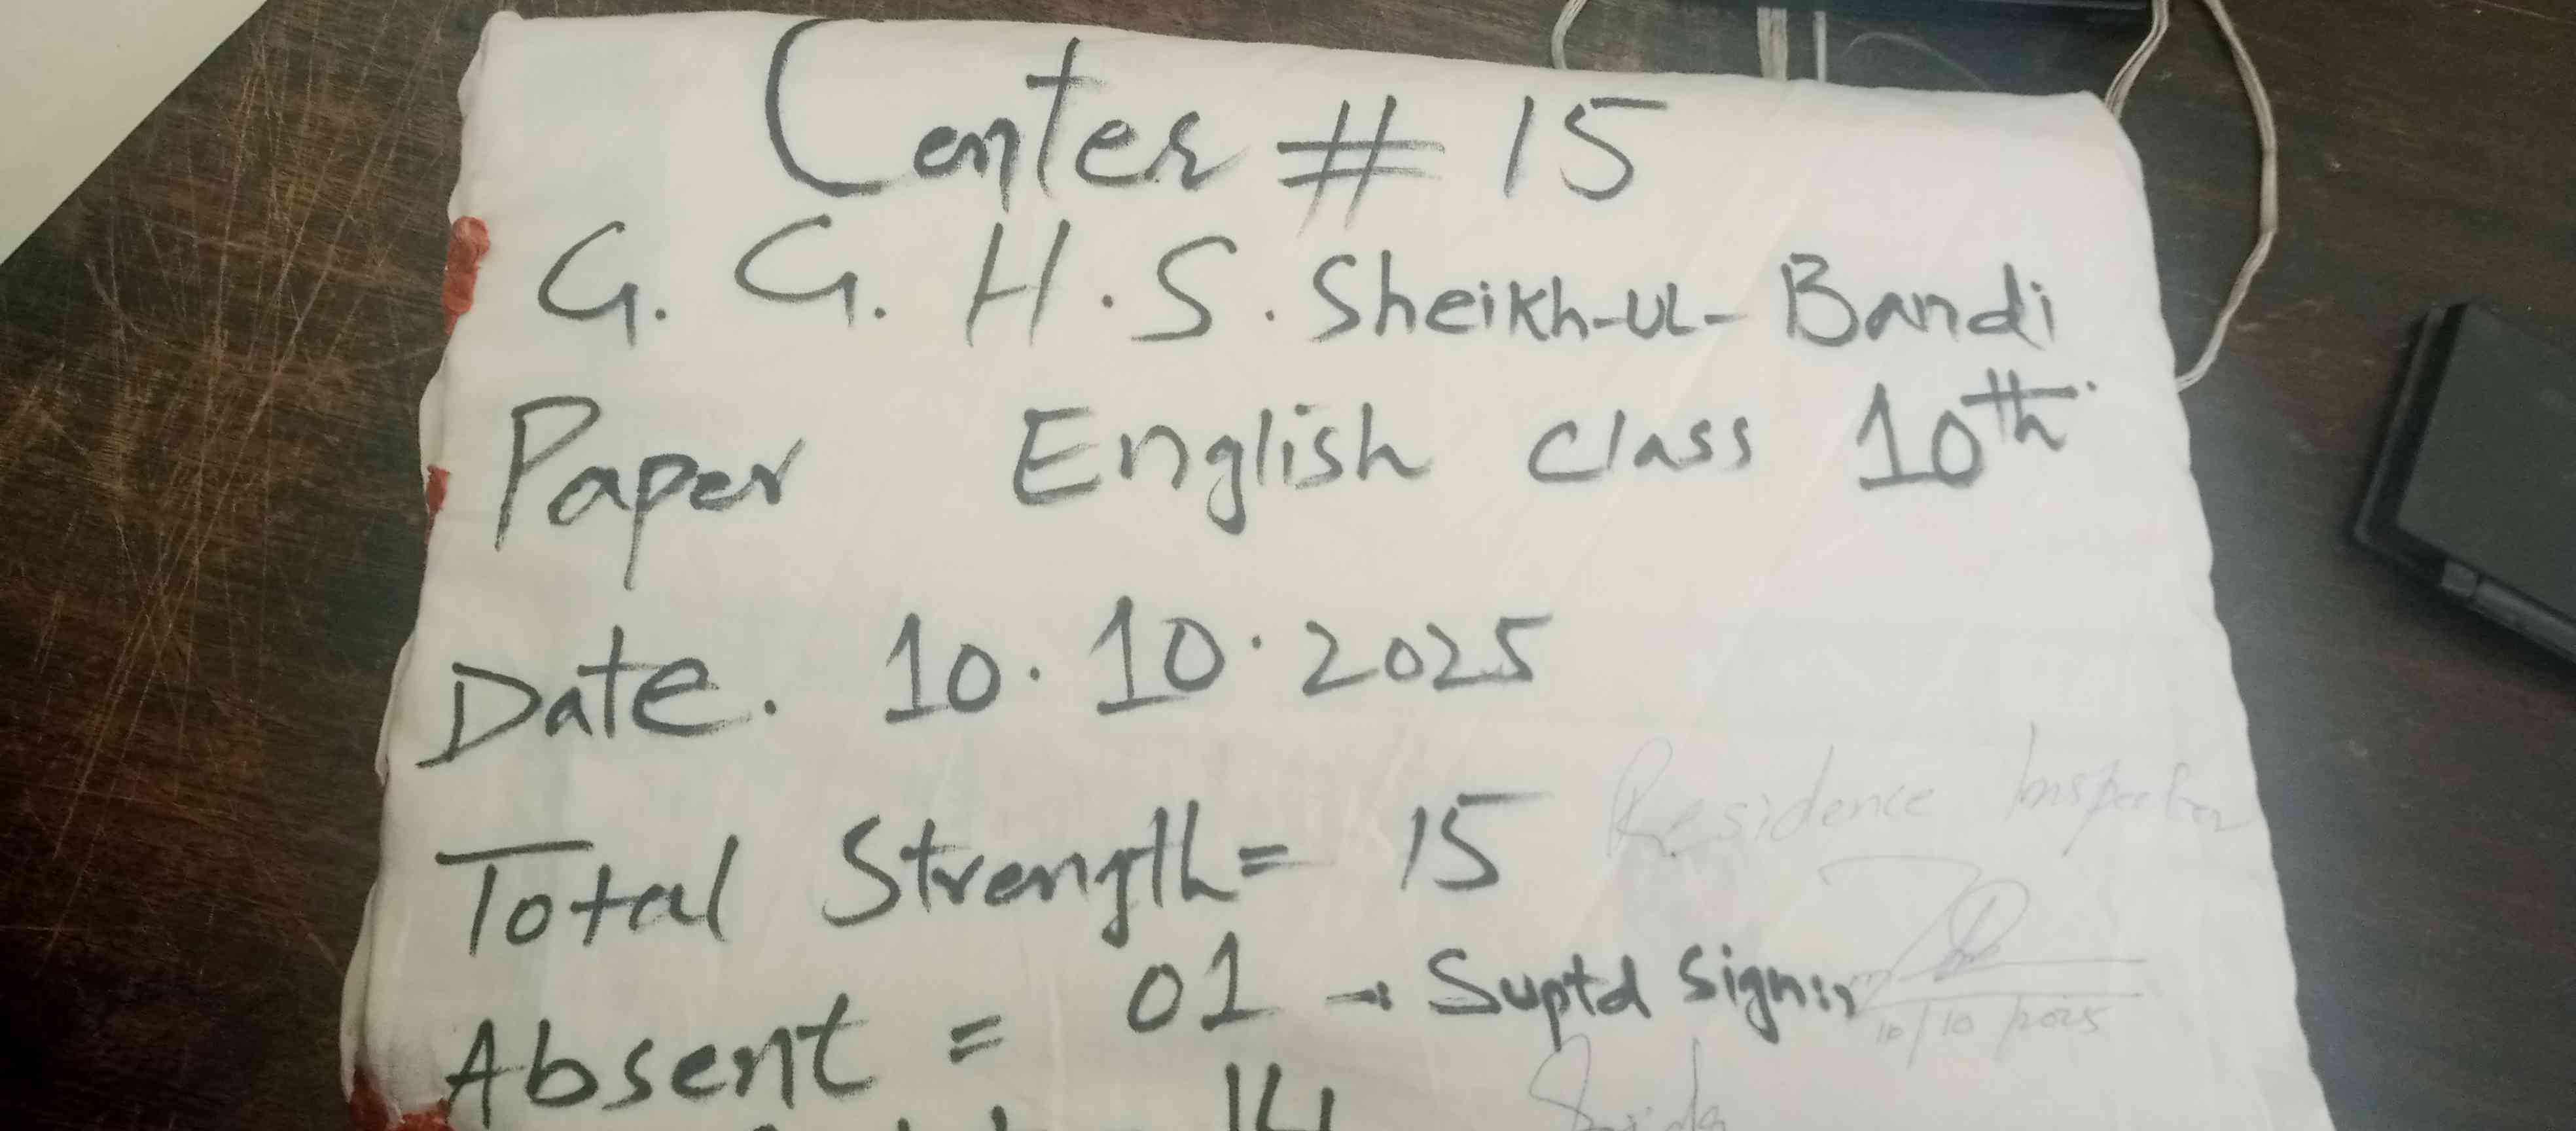 Center # 15
G. G. H. S. Sheikh-ul-Bandi
Paper English Class 10th.
Date. 10.10.2025
Total Strength = 15
Residence Inspector
Absent = 01 → Suptd Sign:
10/10/2025
14